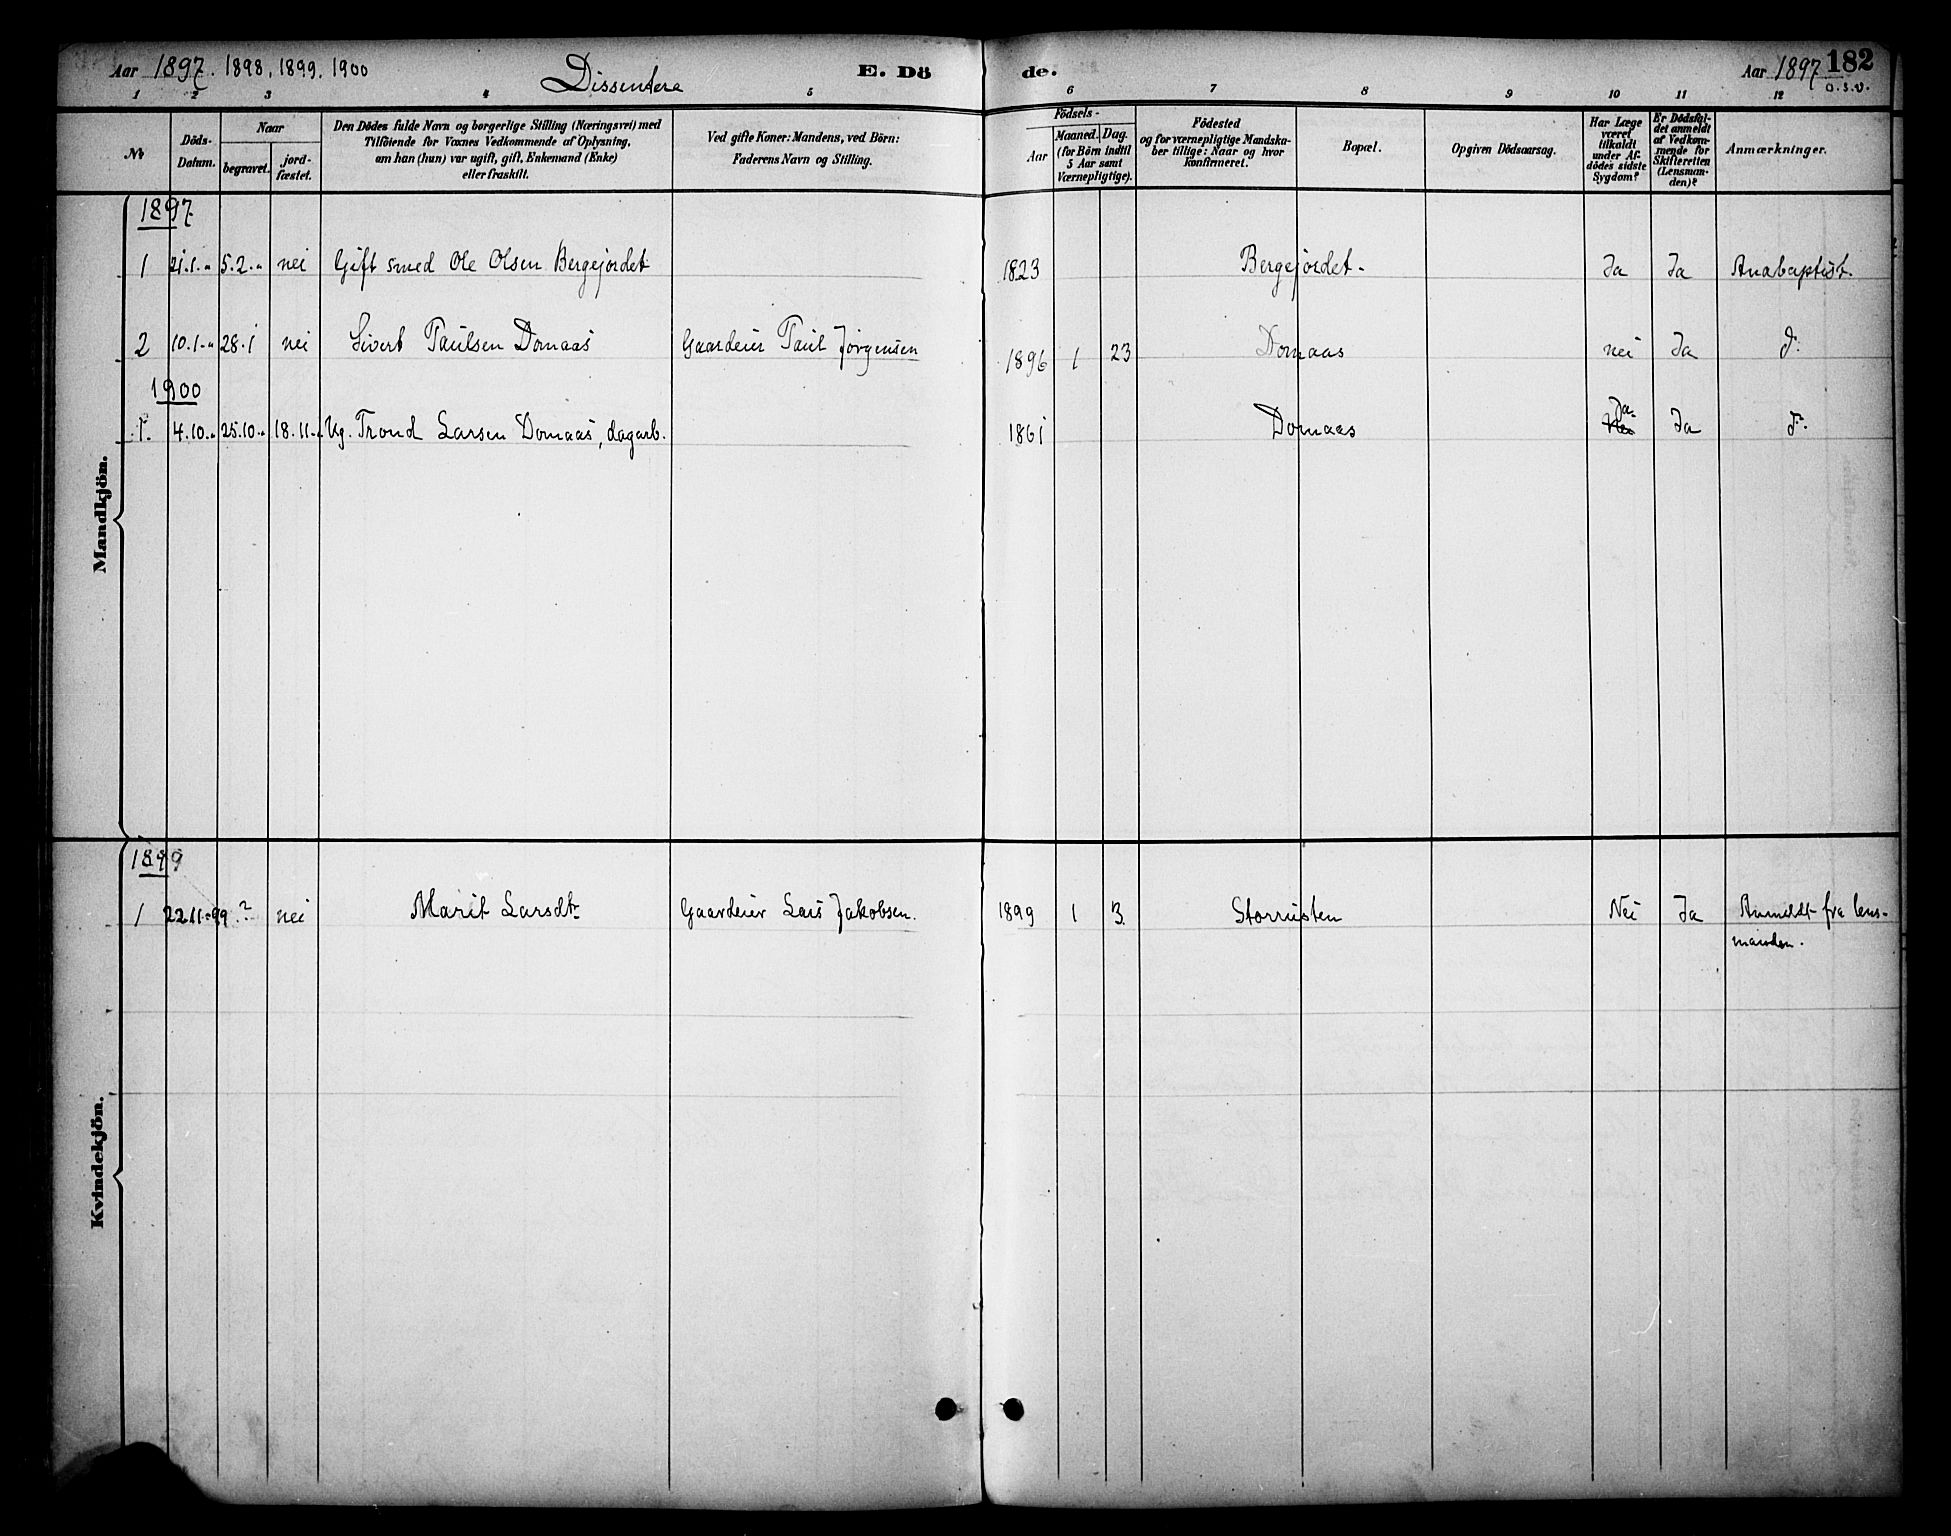 Aar 1897. 1898, 1899, 1900
Dissentere
E. Dö
de.
Aar 1897 182
o.s.v.
1 2 3 4 5 6 7 8 9 10 11 12
No
Döds-
Datum.
Naar
begravet.
jord-
fæstet.
Den Dödes fulde Navn og borgerlige Stilling (Næringsvei) med
Tilföiende for Voxnes Vedkommende af Oplysning,
om han (hun) var ugift, gift, Enkemand (Enke)
eller fraskilt.
Ved gifte Koner: Mandens, ved Börn:
Faderens Navn og Stilling.
Födsels-
Aar
Maaned. Dag.
(for Börn indtil
5 Aar samt
Værnepligtige).
Födested
og for værnepligtige Mandska-
ber tillige: Naar og hvor
konfirmeret.
Bopæl.
Opgiven Dödsaarsag.
Har Læge
været
tilkaldt
under Af-
dödes sidste
Sygdom?
Er Dödsfal-
det anmeldt
af Vedkom-
mende for
Skifteretten
(Lensman-
den)?
Anmærkninger.
Mandkjön.
1897
1 21.1.„ 5.2.„ nei Gift smed Ole Olsen Bergejordet 1823 Bergejordet. Ja Ja Anabaptist.
2 10.1.„ 28.1 nei Sivert Paulsen Domaas Gaardeier Paul Jörgensen 1896 1 23 Domaas nei Ja d:
1900
1. 4.10.„ 25.10.„ 18.11.„ Ug. Trond Larsen Domaas, dagarb. 1861 Domaas Ja Ja d:
Kvindekjön.
1899
1 22.11.99 ? nei Marit Larsdtr Gaardeier Lars Jakobsen. 1899 1 3 Storrusten Nei Ja Anmeldt fra lens-
manden.